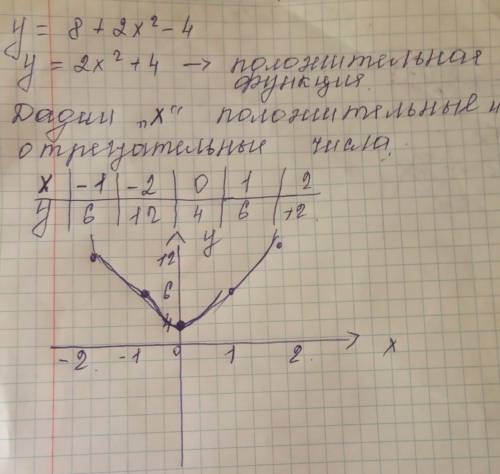 y = 8 + 2x² - 4
y = 2x² + 4 → положительная
функция
Дадим „x“ положительные и
отрецательные числа
x | -1 | -2 | 0 | 1 | 2
y | 6 | 12 | 4 | 6 | 12
y
12
6
4
-2 -1 0 1 2 x